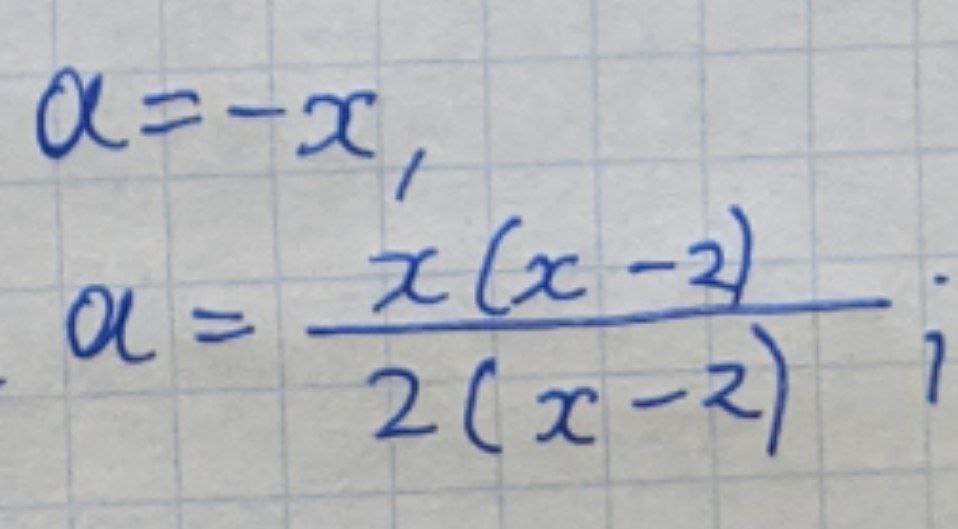 a = -x,
a = x(x-2) / 2(x-2) ;